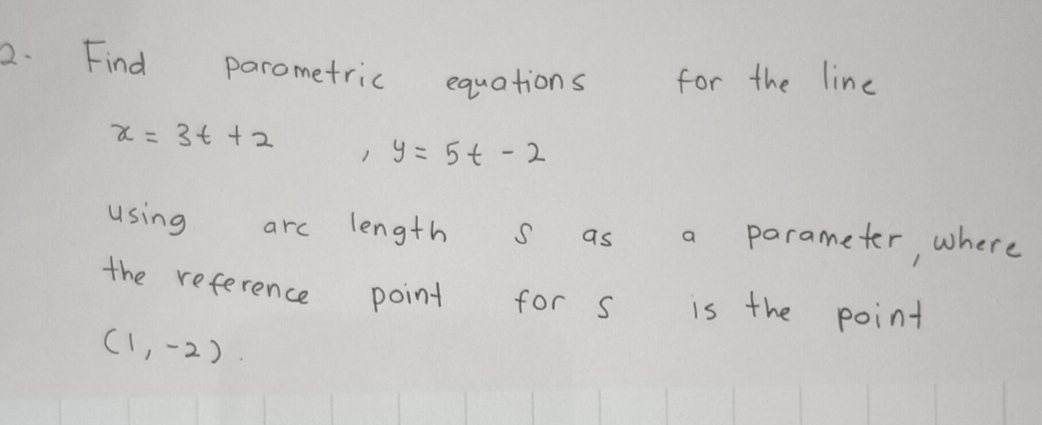 2. Find parametric equations for the line
x = 3t + 2 , y = 5t - 2
using arc length s as a parameter, where
the reference point for s is the point
(1, -2).